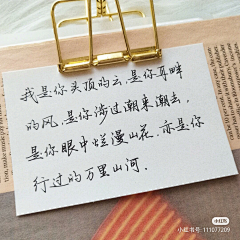 我是你头顶的云,是你耳畔
的风,是你涉过潮来潮去,
是你眼中烂漫山花,亦是你
行过的万里山河.
小红书
小红书号:111077209